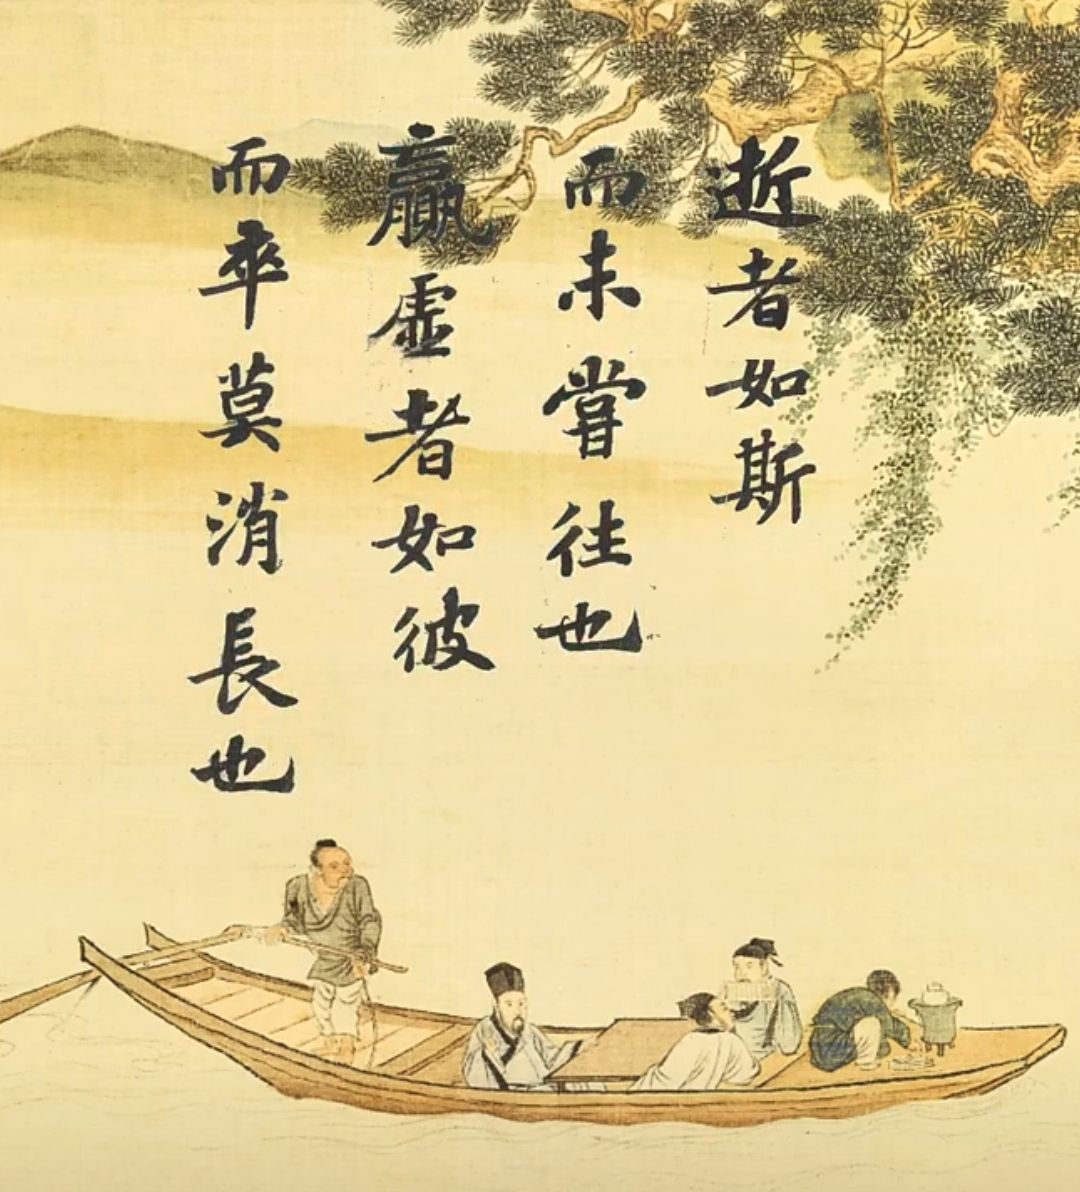 逝者如斯
而未嘗往也
贏虛者如彼
而卒莫消長也